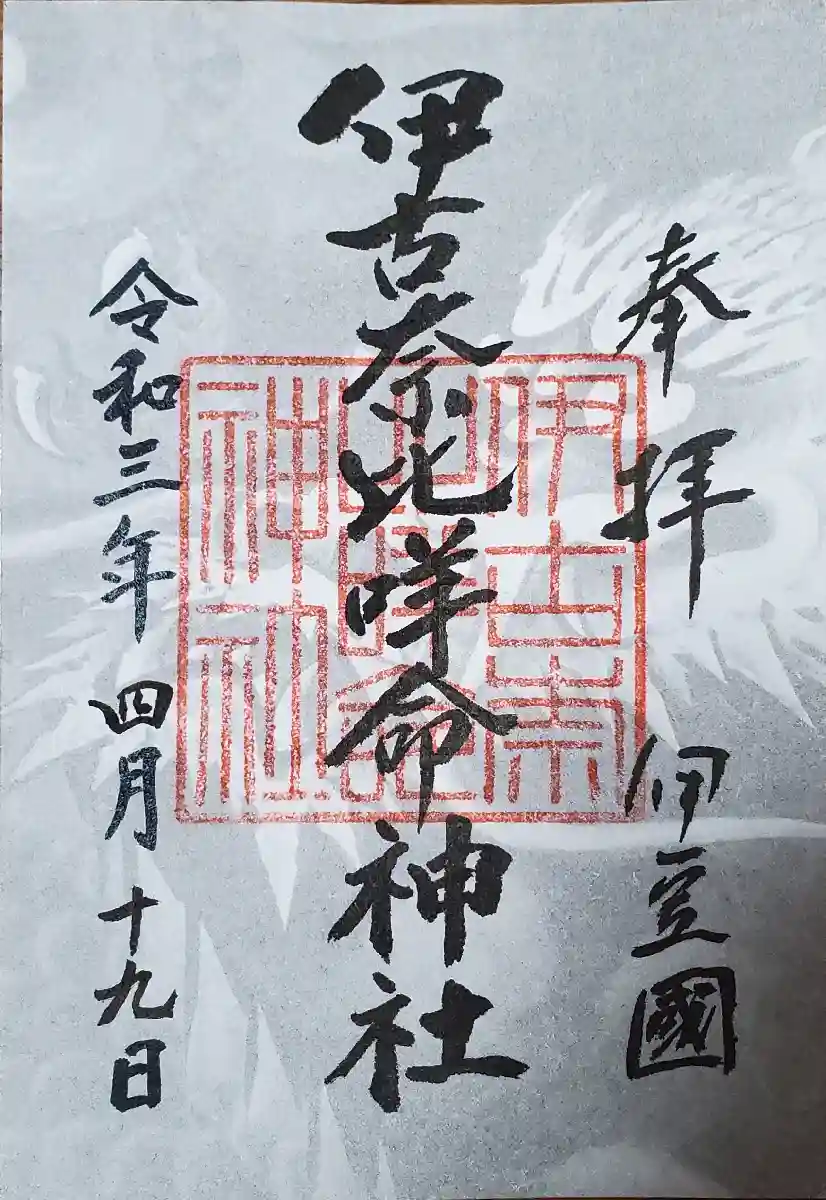 奉拝
伊豆國
伊古奈比咩命神社
伊古奈
比咩命
神社
令和三年四月十九日